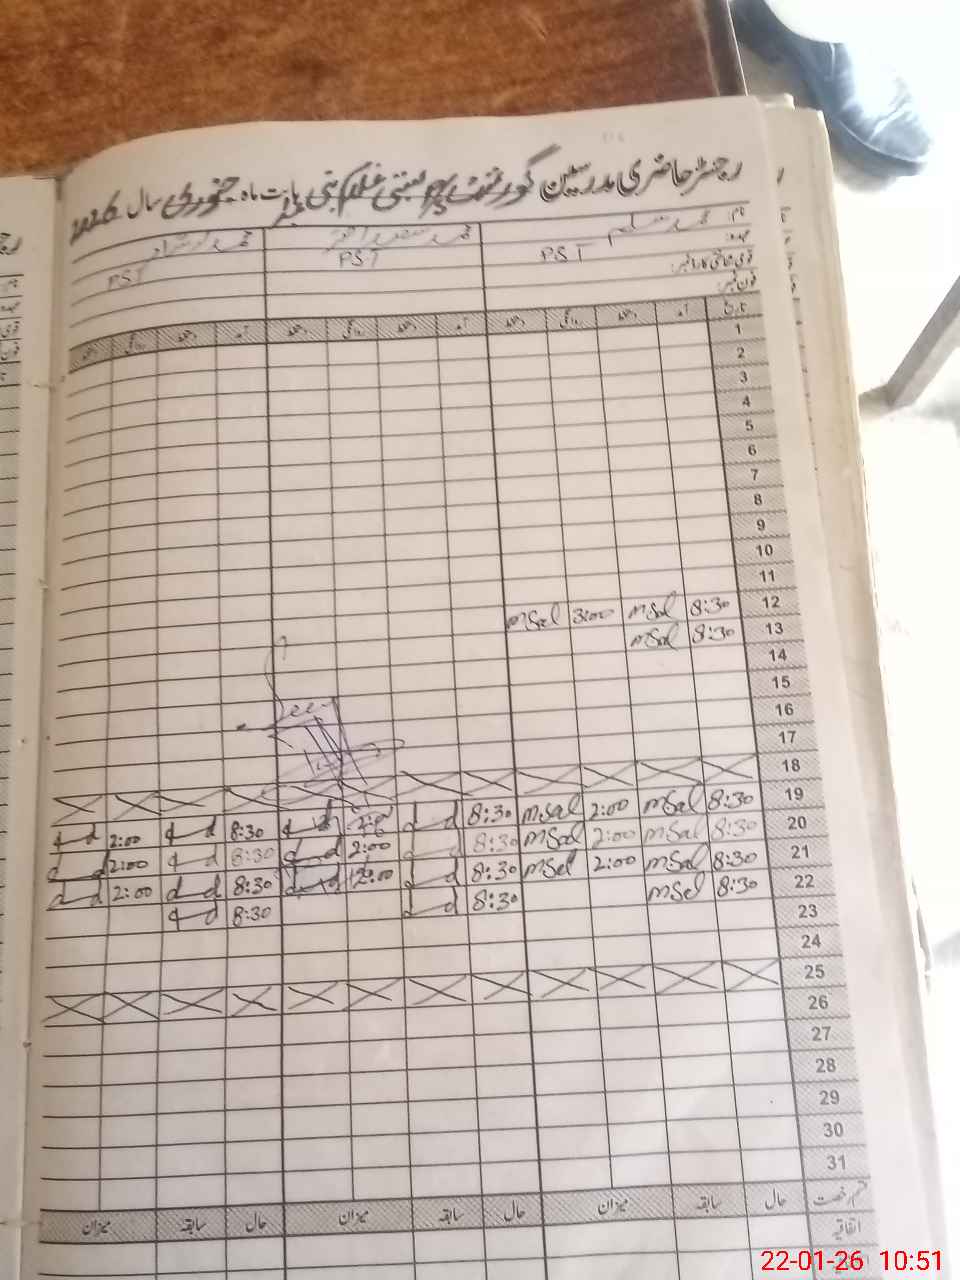 رجسٹر حاضری مدرسین گورنمنٹ پرا بستی غلام نبی بابت ماہ جنوری سال 2026
نام: محمد سلیم محمد سعید احمد محمد
عہدہ: PST PST PST
قومی شناختی کارڈ نمبر:
فون نمبر:
تاریخ آمد دستخط روانگی دستخط آمد دستخط روانگی دستخط آمد دستخط روانگی دستخط
1
2
3
4
5
6
7
8
9
10
11
12 8:30 mSal 3:00 mSal
13 8:30 mSal
14
15
16
17
18
19 8:30 mSal 2:00 mSal 8:30 8:30 2:00
20 8:30 mSal 2:00 mSal 8:30 2:00 8:30 2:00
21 8:30 mSal 2:00 mSal 8:30 2:00 8:30 2:00
22 8:30 mSal 8:30 8:30
23
24
25
26
27
28
29
30
31
قسم رخصت حال سابقہ میزان حال سابقہ میزان حال سابقہ میزان
اتفاقیہ
22-01-26 10:51